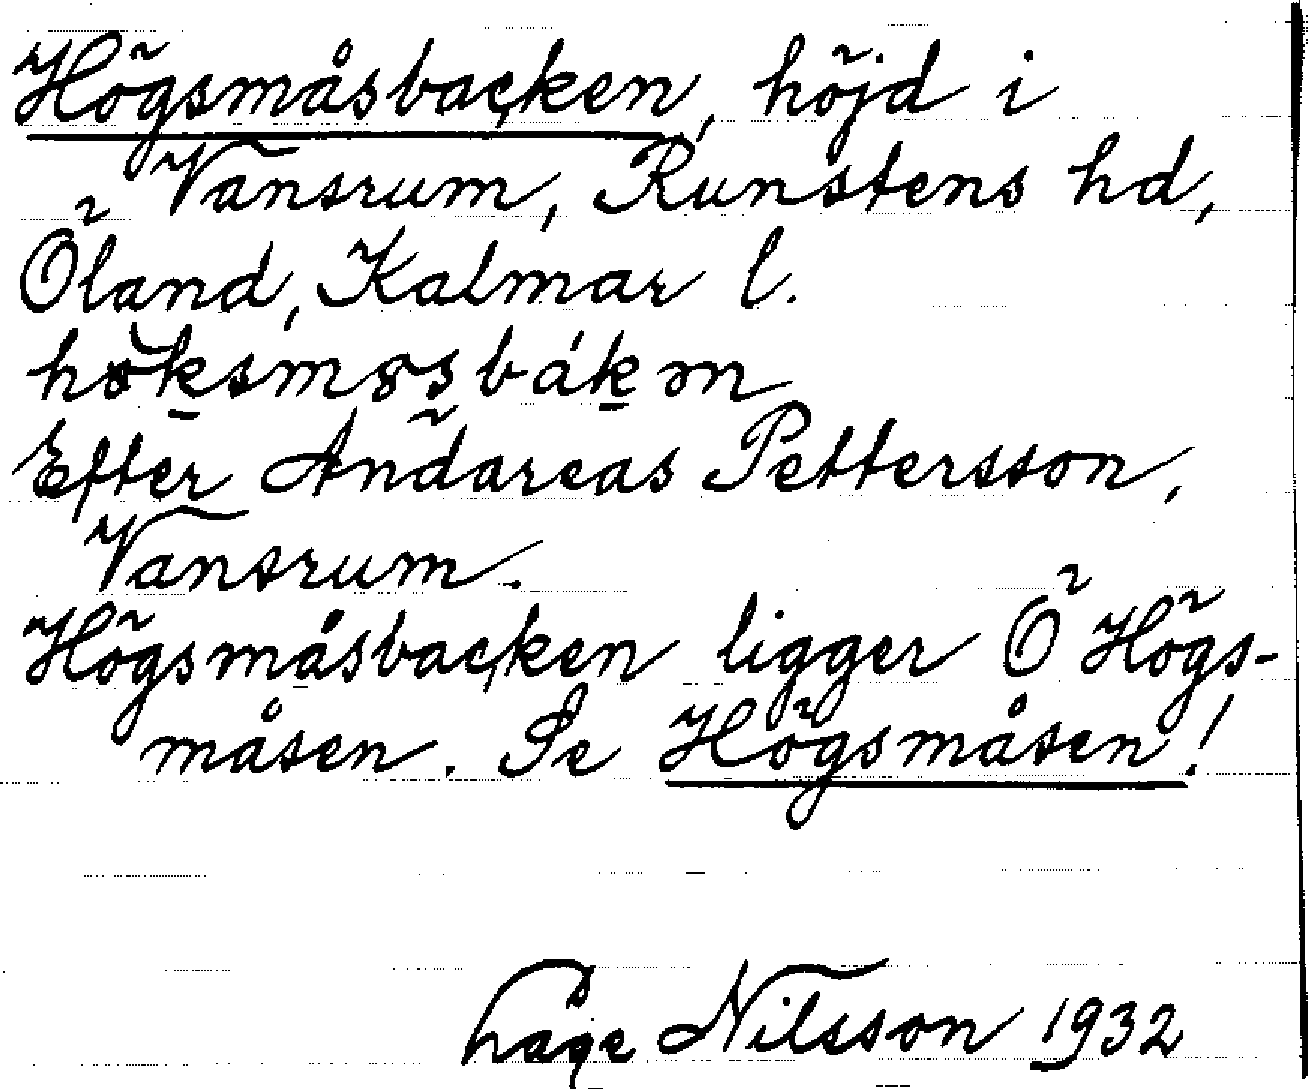 Högsmåsbacken, höjd i
Vansrum, Runstens hd,
Öland, Kalmar l.
Efter Andareas Pettersson,
Vansrum.
Högsmåsbacken ligger Ö Högs-
måsen. Se Högsmåsen!
Håge Nilsson 1932